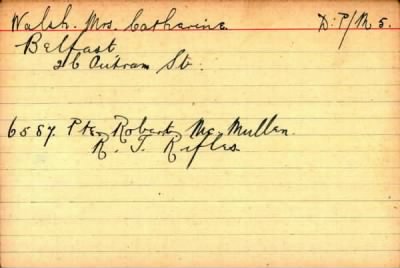 Walsh. Mrs. Catharine. D.P/M 5.
Belfast
26 Outram St.
6587. Pte. Robert Mc Mullen.
R. I. Rifles